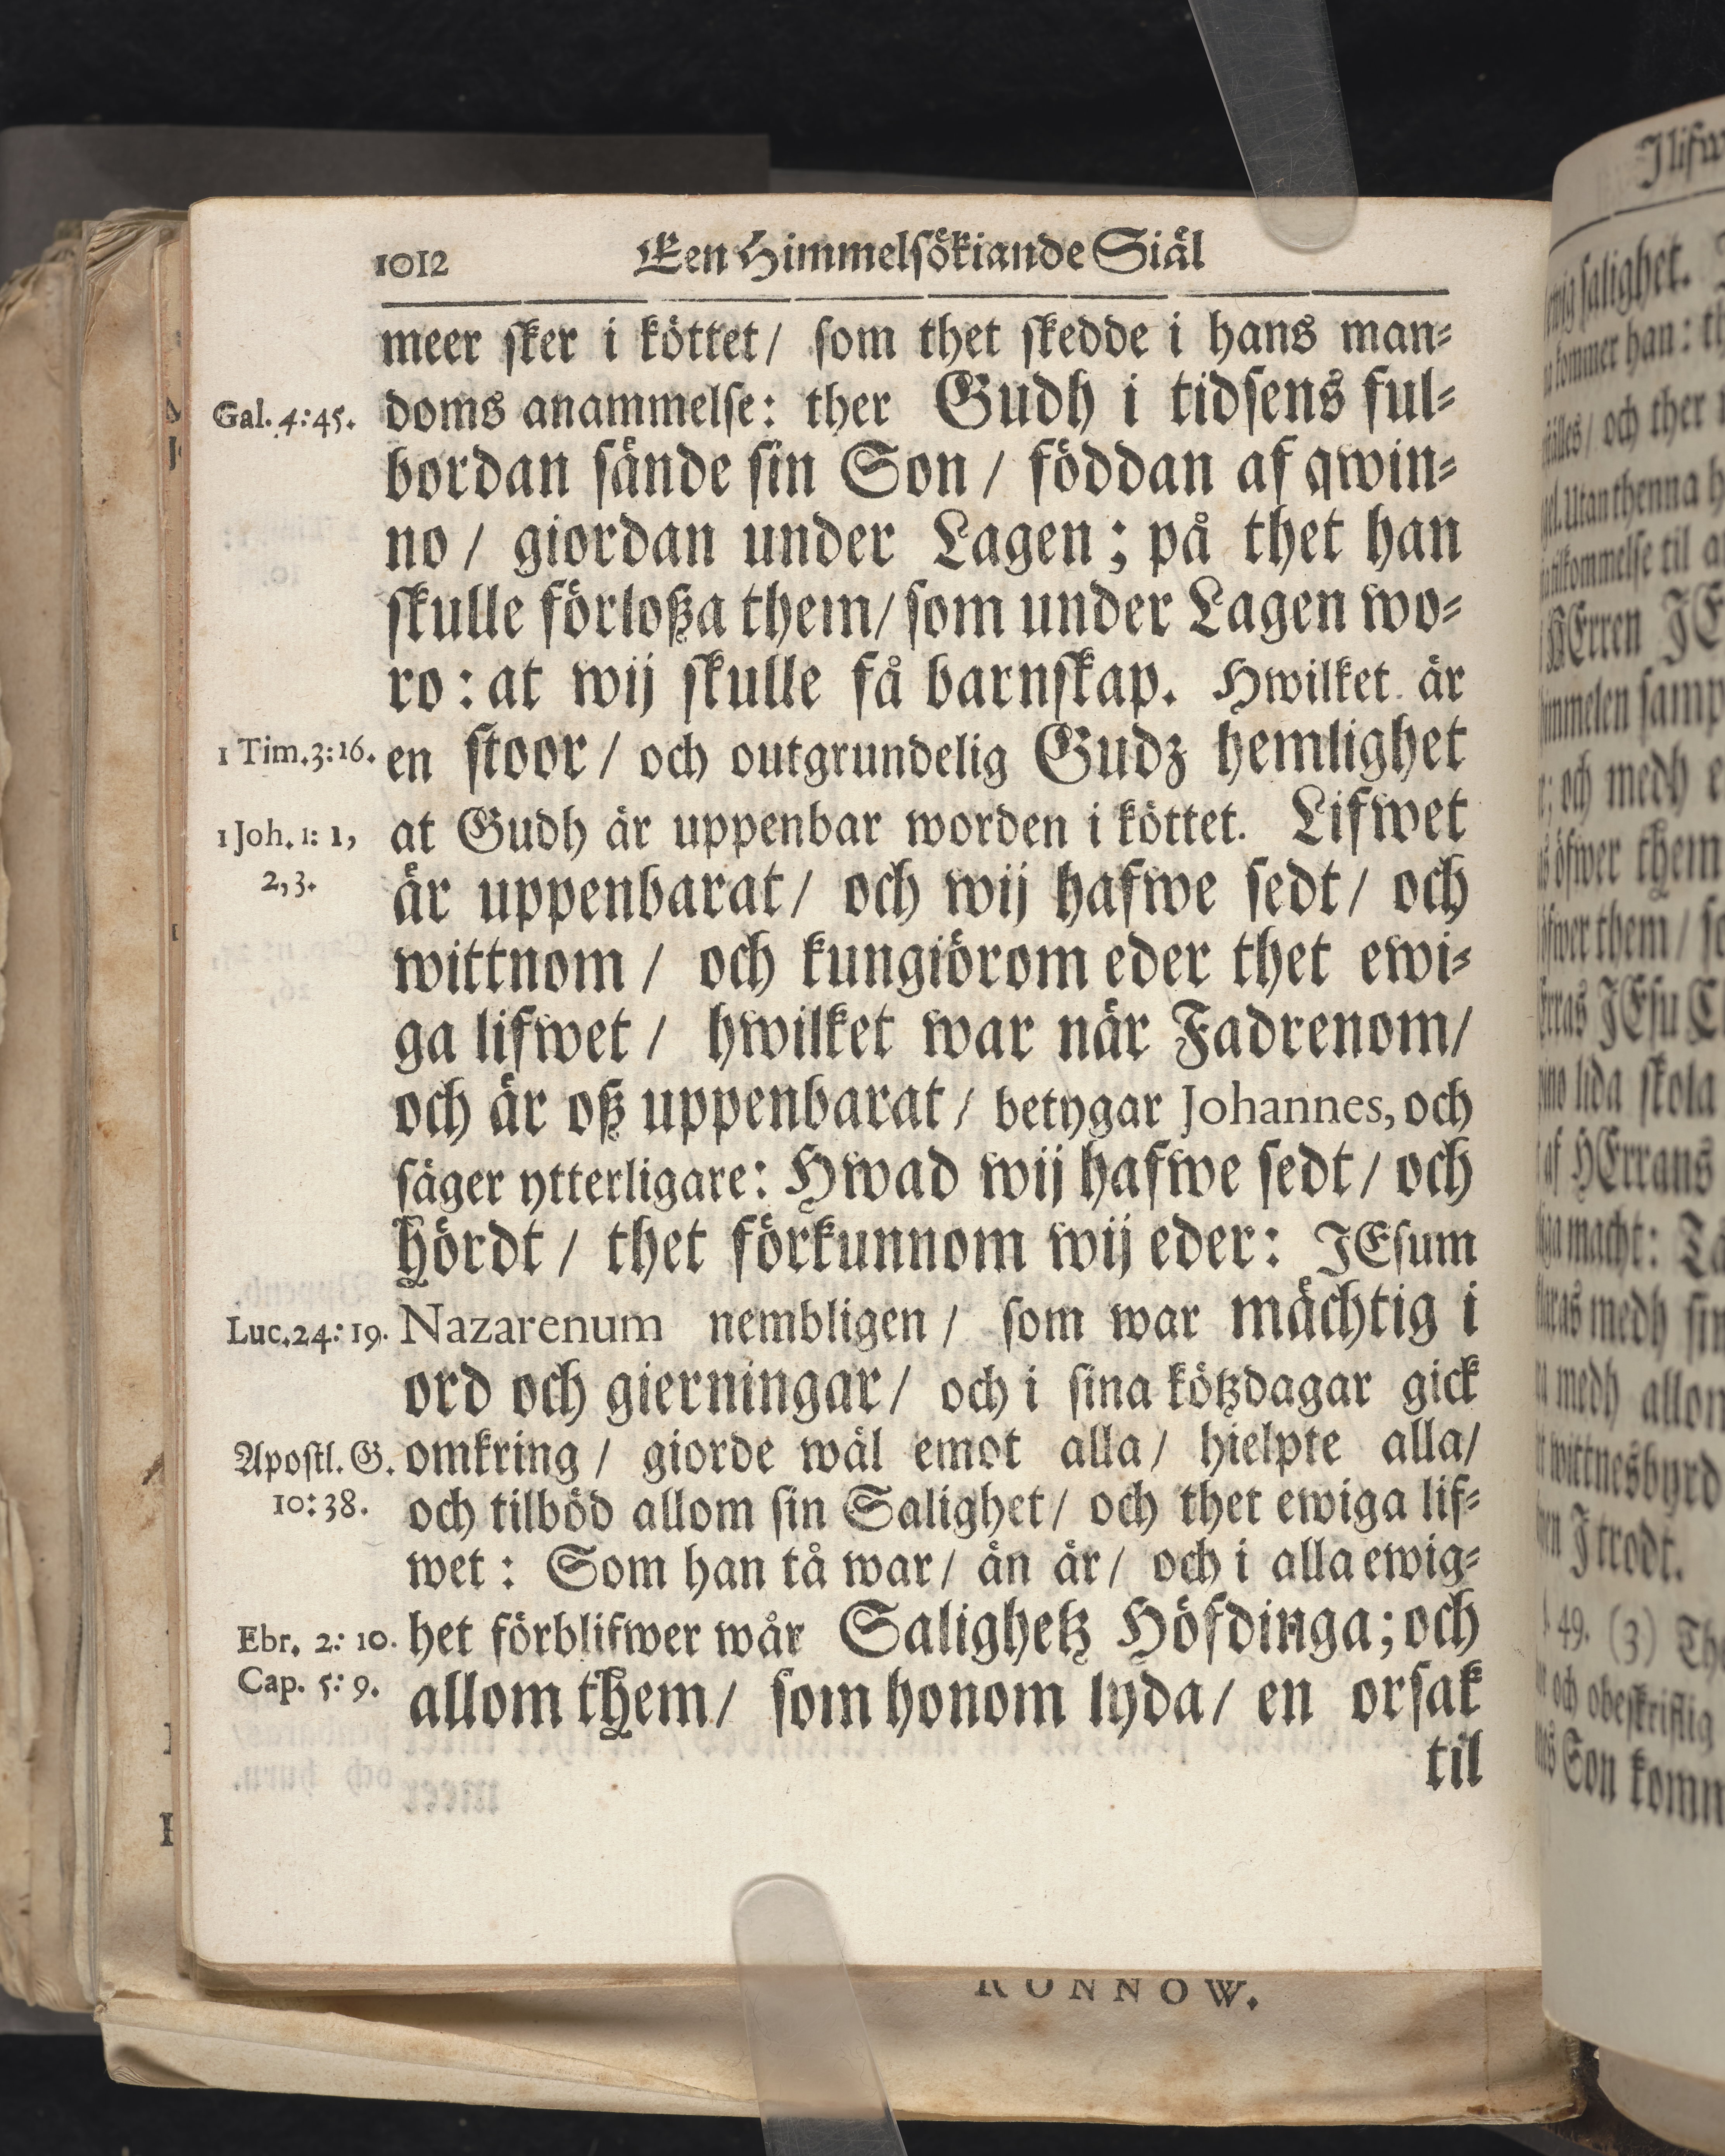 1012 Een Himmelsökiande Siäl
meer sker i köttet/ som thet skedde i hans man⸗
Gal. 4:45. doms anammelse: ther Gudh i tidsens ful⸗
bordan sände sin Son / föddan af qwin⸗
no / giordan under Lagen; på thet han
skulle förloßa them/ som under Lagen wo⸗
ro: at wij skulle få barnskap. Hwilket är
1 Tim. 3:16. en stoor/ och outgrundelig Gudz hemlighet
1 Joh. 1: 1, at Gudh är uppenbar worden i köttet. Lifwet
2, 3. är uppenbarat/ och wij hafwe sedt/ och
wittnom / och kungiörom eder thet ewi⸗
ga lifwet / hwilket war när Fadrenom/
och är oß uppenbarat/ betygar Johannes, och
säger ytterligare: Hwad wij hafwe sedt/ och
hördt / thet förkunnom wij eder: JEsum
Luc. 24: 19. Nazarenum nembligen / som war mächtig i
ord och gierningar/ och i sina kötzdagar gick
Apostl. G. omkring / giorde wäl emot alla/ hielpte alla/
10: 38. och tilböd allom sin Salighet/ och thet ewiga lif⸗
wet: Som han tå war/ än är/ och i alla ewig⸗
Ebr. 2: 10. het förblifwer wår Salighetz Höfdinga; och
Cap. 5: 9. allom them/ som honom lyda/ en orsak
til
RÖNNOW.
salighet.
kommer han:
och ther
Utan thenna
HErren
och medh
öfwer them
them /
lida skola
af HErrans
macht:
medh
medh allom
wittnesbyrd
J trodt.
49. (3)
och obeskriflig
Son